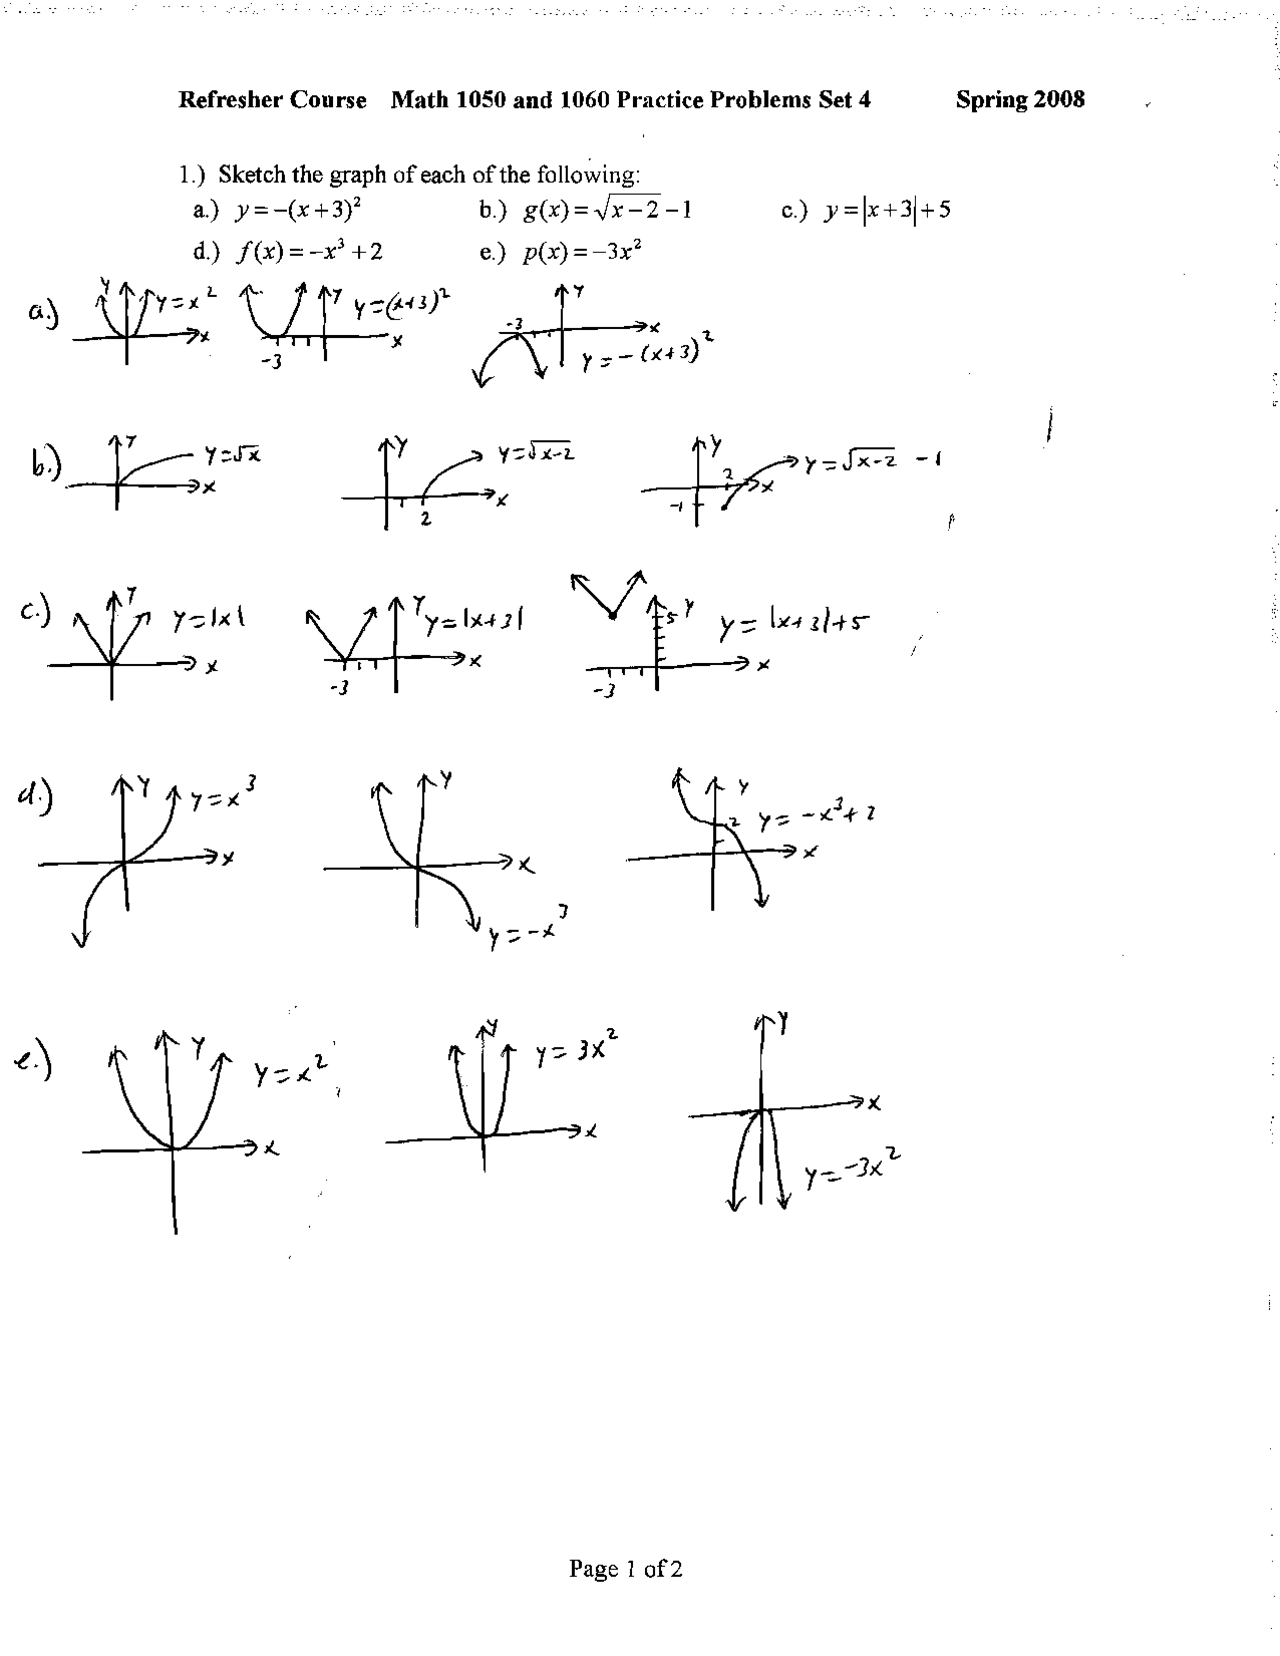 Refresher Course Math 1050 and 1060 Practice Problems Set 4 Spring 2008
1.) Sketch the graph of each of the following:
a.) y = −(x+3)² b.) g(x) = √(x−2) −1 c.) y = |x+3|+5
d.) f(x) = −x³ +2 e.) p(x) = −3x²
a.) y y=x² x y y=(x+3)² x -3 y -3 x y = -(x+3)²
b.) y y=√x x y y=√x-2 x 2 y 2 x y=√x-2 -1 -1
c.) y y=|x| x y y=|x+3| x -3 5 y y= |x+3|+5 x -3
d.) y y=x³ x y x y=-x³ y 2 y= -x³+2 x
e.) y y=x² x y y= 3x² x y x y=-3x²
Page 1 of 2